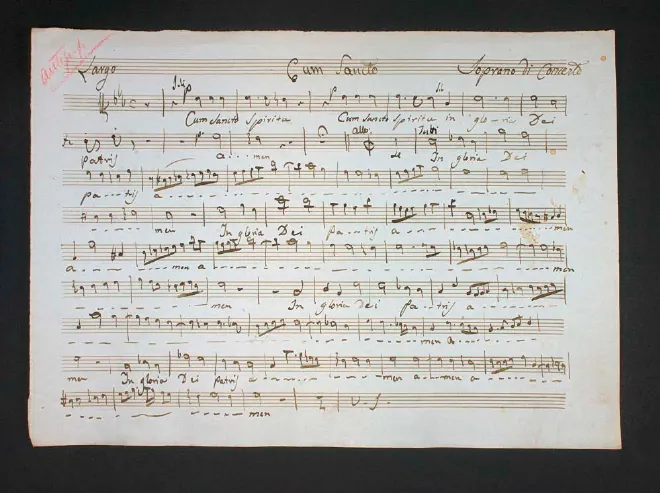 Largo Cum Sancto Soprano di Concerto
Cum Sancto Spiritu Cum Sancto Spiritu in glo-ria Dei
patris a - - men allo. In gloria Dei
pa - - tris a
men In gloria Dei pa - - tris a men
a men a men
men In gloria Dei pa - - tris a
men a
men In gloria Dei patris a men a - - men a
men